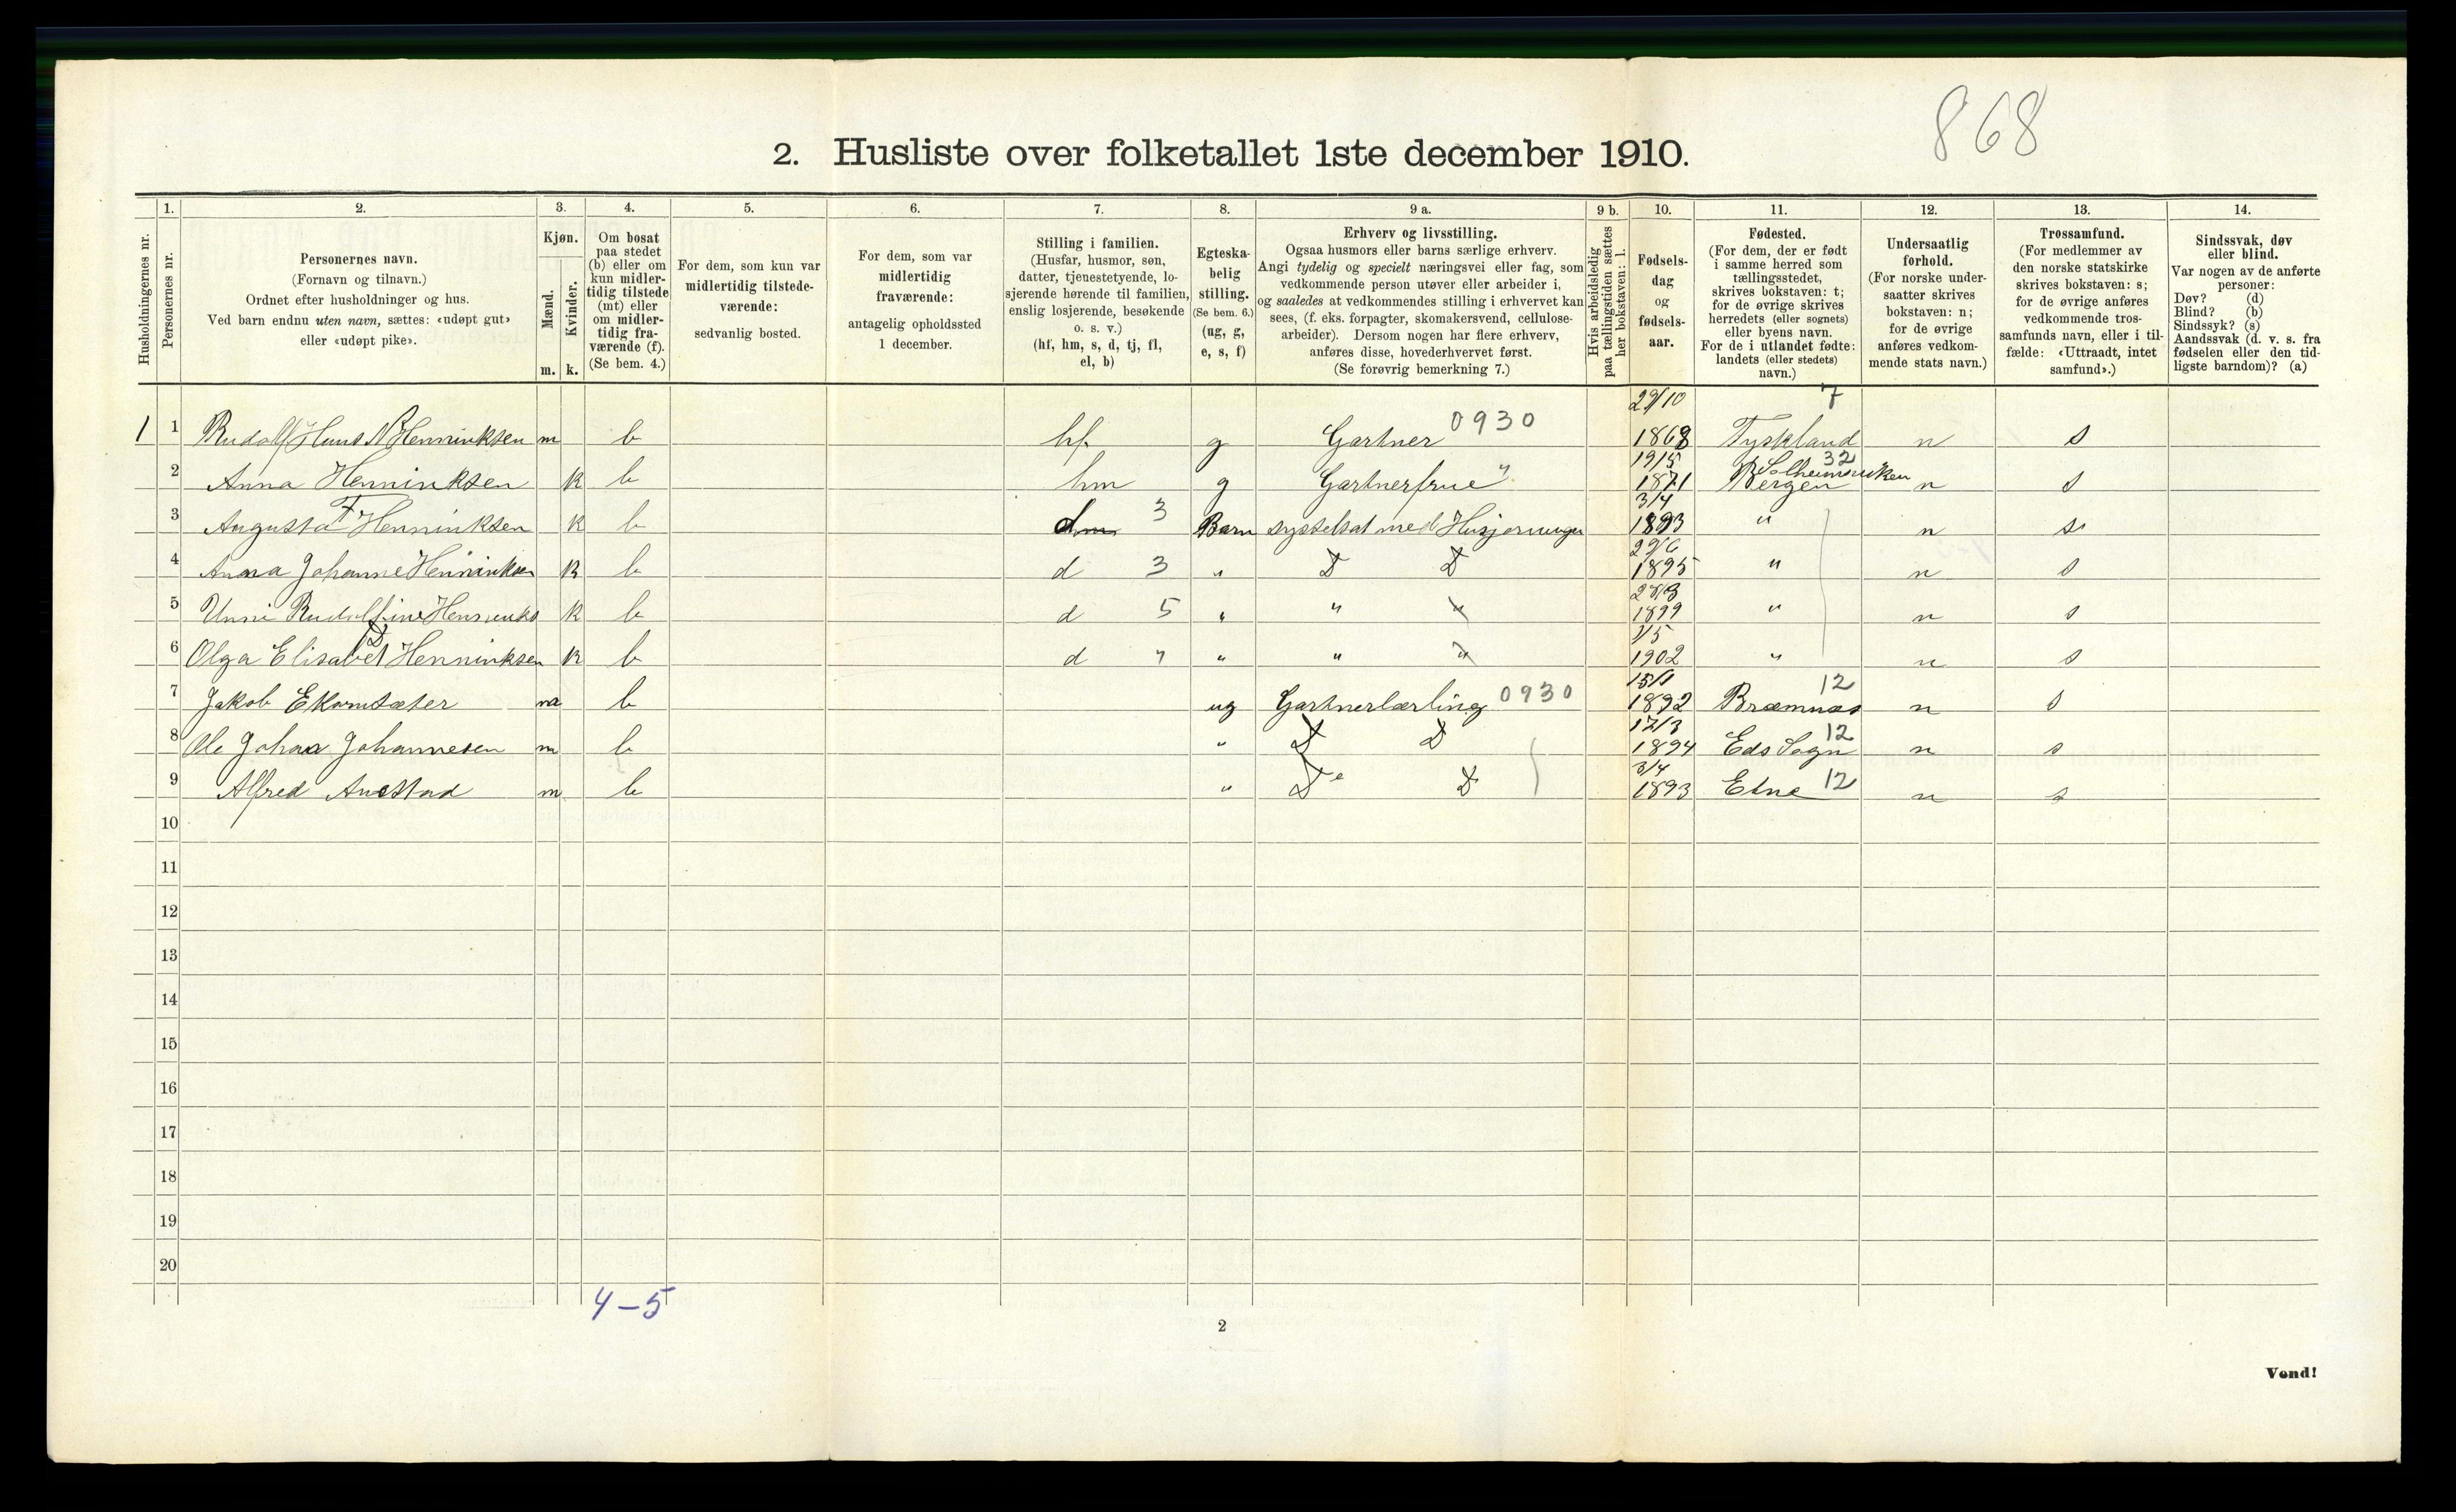 868
2. Husliste over folketallet 1ste december 1910.
Husholdningernes nr.
1.
Personernes nr.
2.
Personernes navn.
(Fornavn og tilnavn.)
Ordnet efter husholdninger og hus.
Ved barn endnu uten navn, sættes: «udøpt gut»
eller «udøpt pike».
3.
Kjøn.
Mænd.
Kvinder.
m. k.
4.
Om bosat
paa stedet
(b) eller om
kun midler-
tidig tilstede
(mt) eller
om midler-
tidig fra-
værende (f).
(Se bem. 4.)
5.
For dem, som kun var
midlertidig tilstede-
værende:
sedvanlig bosted.
6.
For dem, som var
midlertidig
fraværende:
antagelig opholdssted
1 december.
7.
Stilling i familien.
(Husfar, husmor, søn,
datter, tjenestetyende, lo-
sjerende hørende til familien,
enslig losjerende, besøkende
o. s. v.)
(hf, hm, s, d, tj, fl,
el, b)
8.
Egteska-
belig
stilling.
(Se bem. 6.)
(ug, g,
e, s, f)
9 a.
Erhverv og livsstilling.
Ogsaa husmors eller barns særlige erhverv.
Angi tydelig og specielt næringsvei eller fag, som
vedkommende person utøver eller arbeider i,
og saaledes at vedkommendes stilling i erhvervet kan
sees, (f. eks. forpagter, skomakersvend, cellulose-
arbeider). Dersom nogen har flere erhverv,
anføres disse, hovederhvervet først.
(Se forøvrig bemerkning 7.)
9 b.
Hvis arbeidsledig
paa tællingstiden sættes
her bokstaven: l.
10.
Fødsels-
dag
og
fødsels-
aar.
11.
Fødested.
(For dem, der er født
i samme herred som
tællingsstedet,
skrives bokstaven: t;
for de øvrige skrives
herredets (eller sognets)
eller byens navn.
For de i utlandet fødte:
landets (eller stedets)
navn.)
12.
Undersaatlig
forhold.
(For norske under-
saatter skrives
bokstaven: n;
for de øvrige
anføres vedkom-
mende stats navn.)
13.
Trossamfund.
(For medlemmer av
den norske statskirke
skrives bokstaven: s;
for de øvrige anføres
vedkommende tros-
samfunds navn, eller i til-
fælde: «Uttraadt, intet
samfund».)
14.
Sindssvak, døv
eller blind.
Var nogen av de anførte
personer:
Døv? (d)
Blind? (b)
Sindssyk? (s)
Aandssvak (d. v. s. fra
fødselen eller den tid-
ligste barndom)? (a)
1 1 Rudolf Hans N Henninksen m b hf g Gartner 0930 29/10 1868 Tyskland 7 n s
2 Anna Henninksen k b hm g Gartnerfrue " 19/5 1871 Bergen Solheimsviken 32 n s
3 Augusta F Henninksen k b d 3 Barn sysselsat med 3/4 1893 " n s
4 Anna Johanne Henninksen k b d 3 " D D 29/6 1895 " n s
5 Unni Rudolfine k b d 5 " " " 1899 " n s
6 Olga Elisabet Henninksen k b d 7 " " " 1/5 1902 " n s
7 Jakob Ekornsæter m b ug Gartnerlærling 0930 1892 Bræmnæs 12 n s
8 Ole Johan Johannesen m b " D D 17/3 1894 Eds Sogn 12 n s
9 Alfred m b " D D 3/4 1893 Etne 12 n s
10
11
12
13
14
15
16
17
18
19
20
4-5
2
Vend!